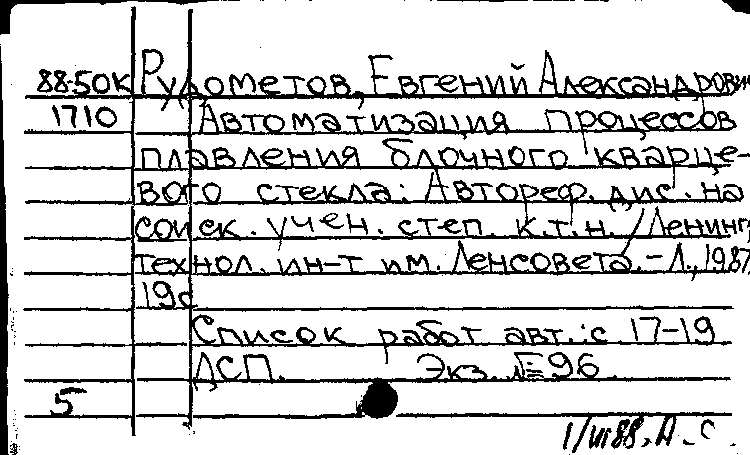 88-50К Рудометов, Евгений Александрович
1710 Автоматизация процессов
плавления блочного кварце-
вого стекла: Автореф. дис. на
соиск. учен. степ. к.т.н. / Ленингр.
технол. ин-т им. Ленсовета. - Л., 1987.
19с
Список работ авт.: с 17-19
ДСП. Экз. № 96
5
1/VI 88. А. С.